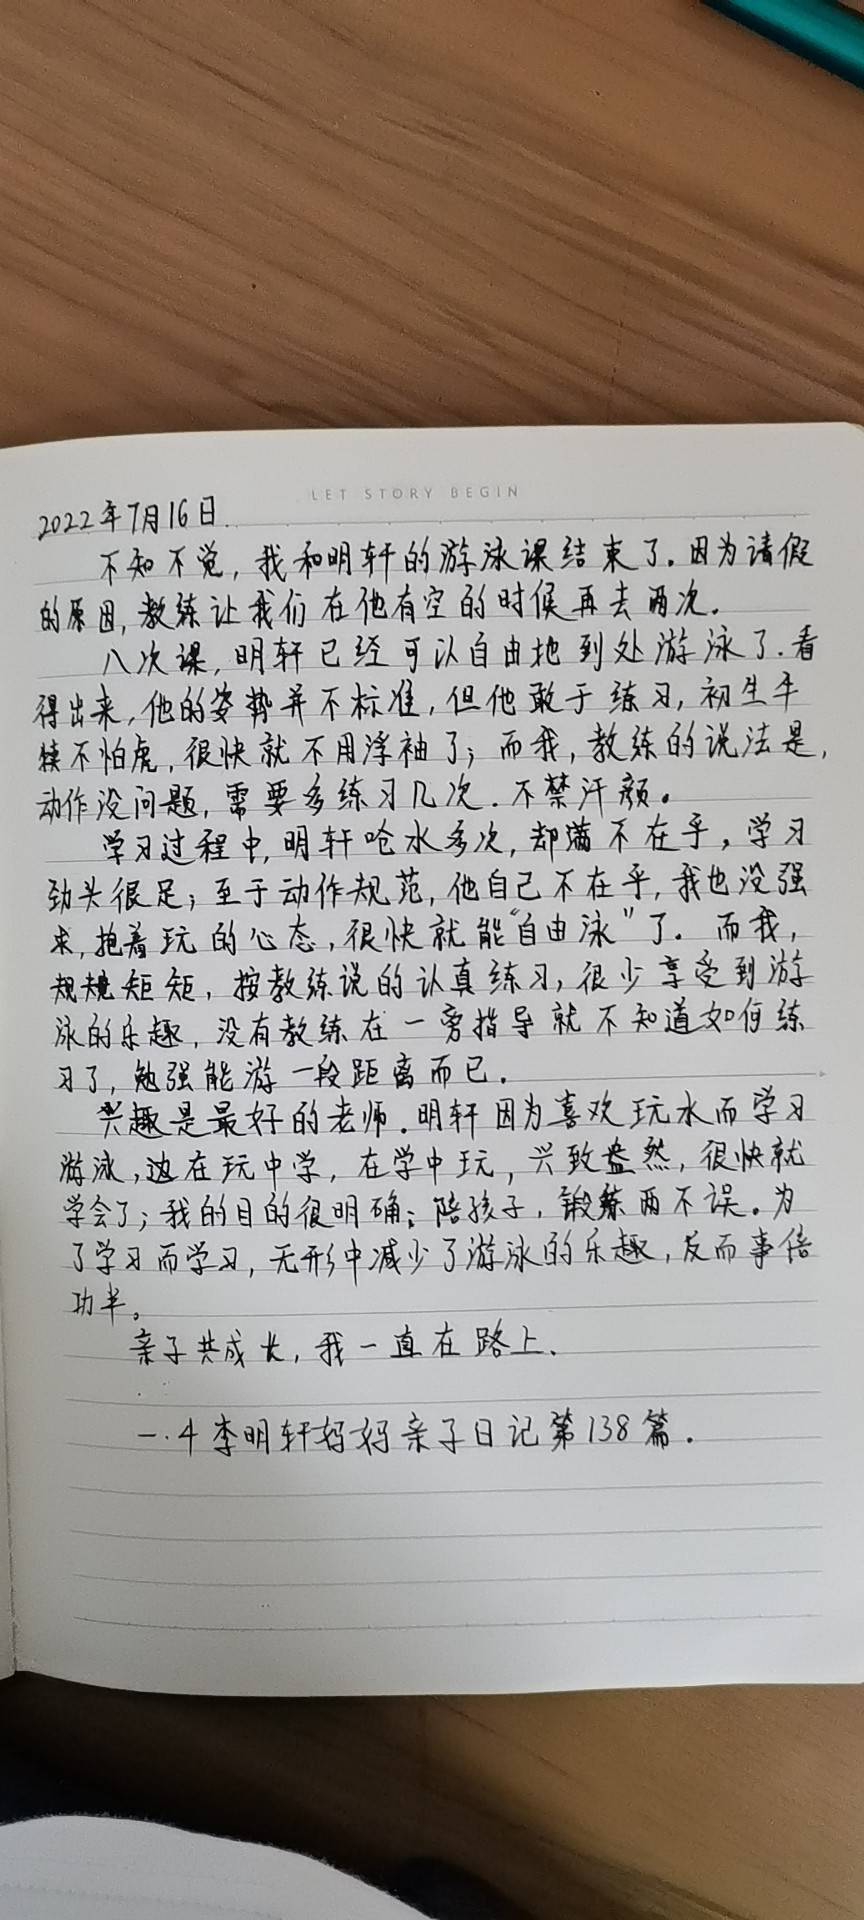 LET STORY BEGIN
2022年7月16日
不知不觉，我和明轩的游泳课结束了。因为请假
的原因，教练让我们在他有空的时候再去两次。
八次课，明轩已经可以自由地到处游泳了.看
得出来，他的姿势并不标准，但他敢于练习，初生牛
犊不怕虎，很快就不用浮袖了；而我，教练的说法是，
动作没问题，需要多练习几次.不禁汗颜。
学习过程中，明轩呛水多次，却满不在乎，学习
劲头很足；至于动作规范，他自己不在乎，我也没强
求，抱着玩的心态，很快就能“自由泳”了. 而我，
规规矩矩，按教练说的认真练习，很少享受到游
泳的乐趣，没有教练在一旁指导就不知道如何练
习了，勉强能游一段距离而已.
兴趣是最好的老师.明轩因为喜欢玩水而学习
游泳，边在玩中学，在学中玩，兴致盎然，很快就
学会了；我的目的很明确：陪孩子，锻炼两不误。为
了学习而学习，无形中减少了游泳的乐趣，反而事倍
功半。
亲子共成长，我一直在路上.
一.4李明轩妈妈亲子日记第138篇.